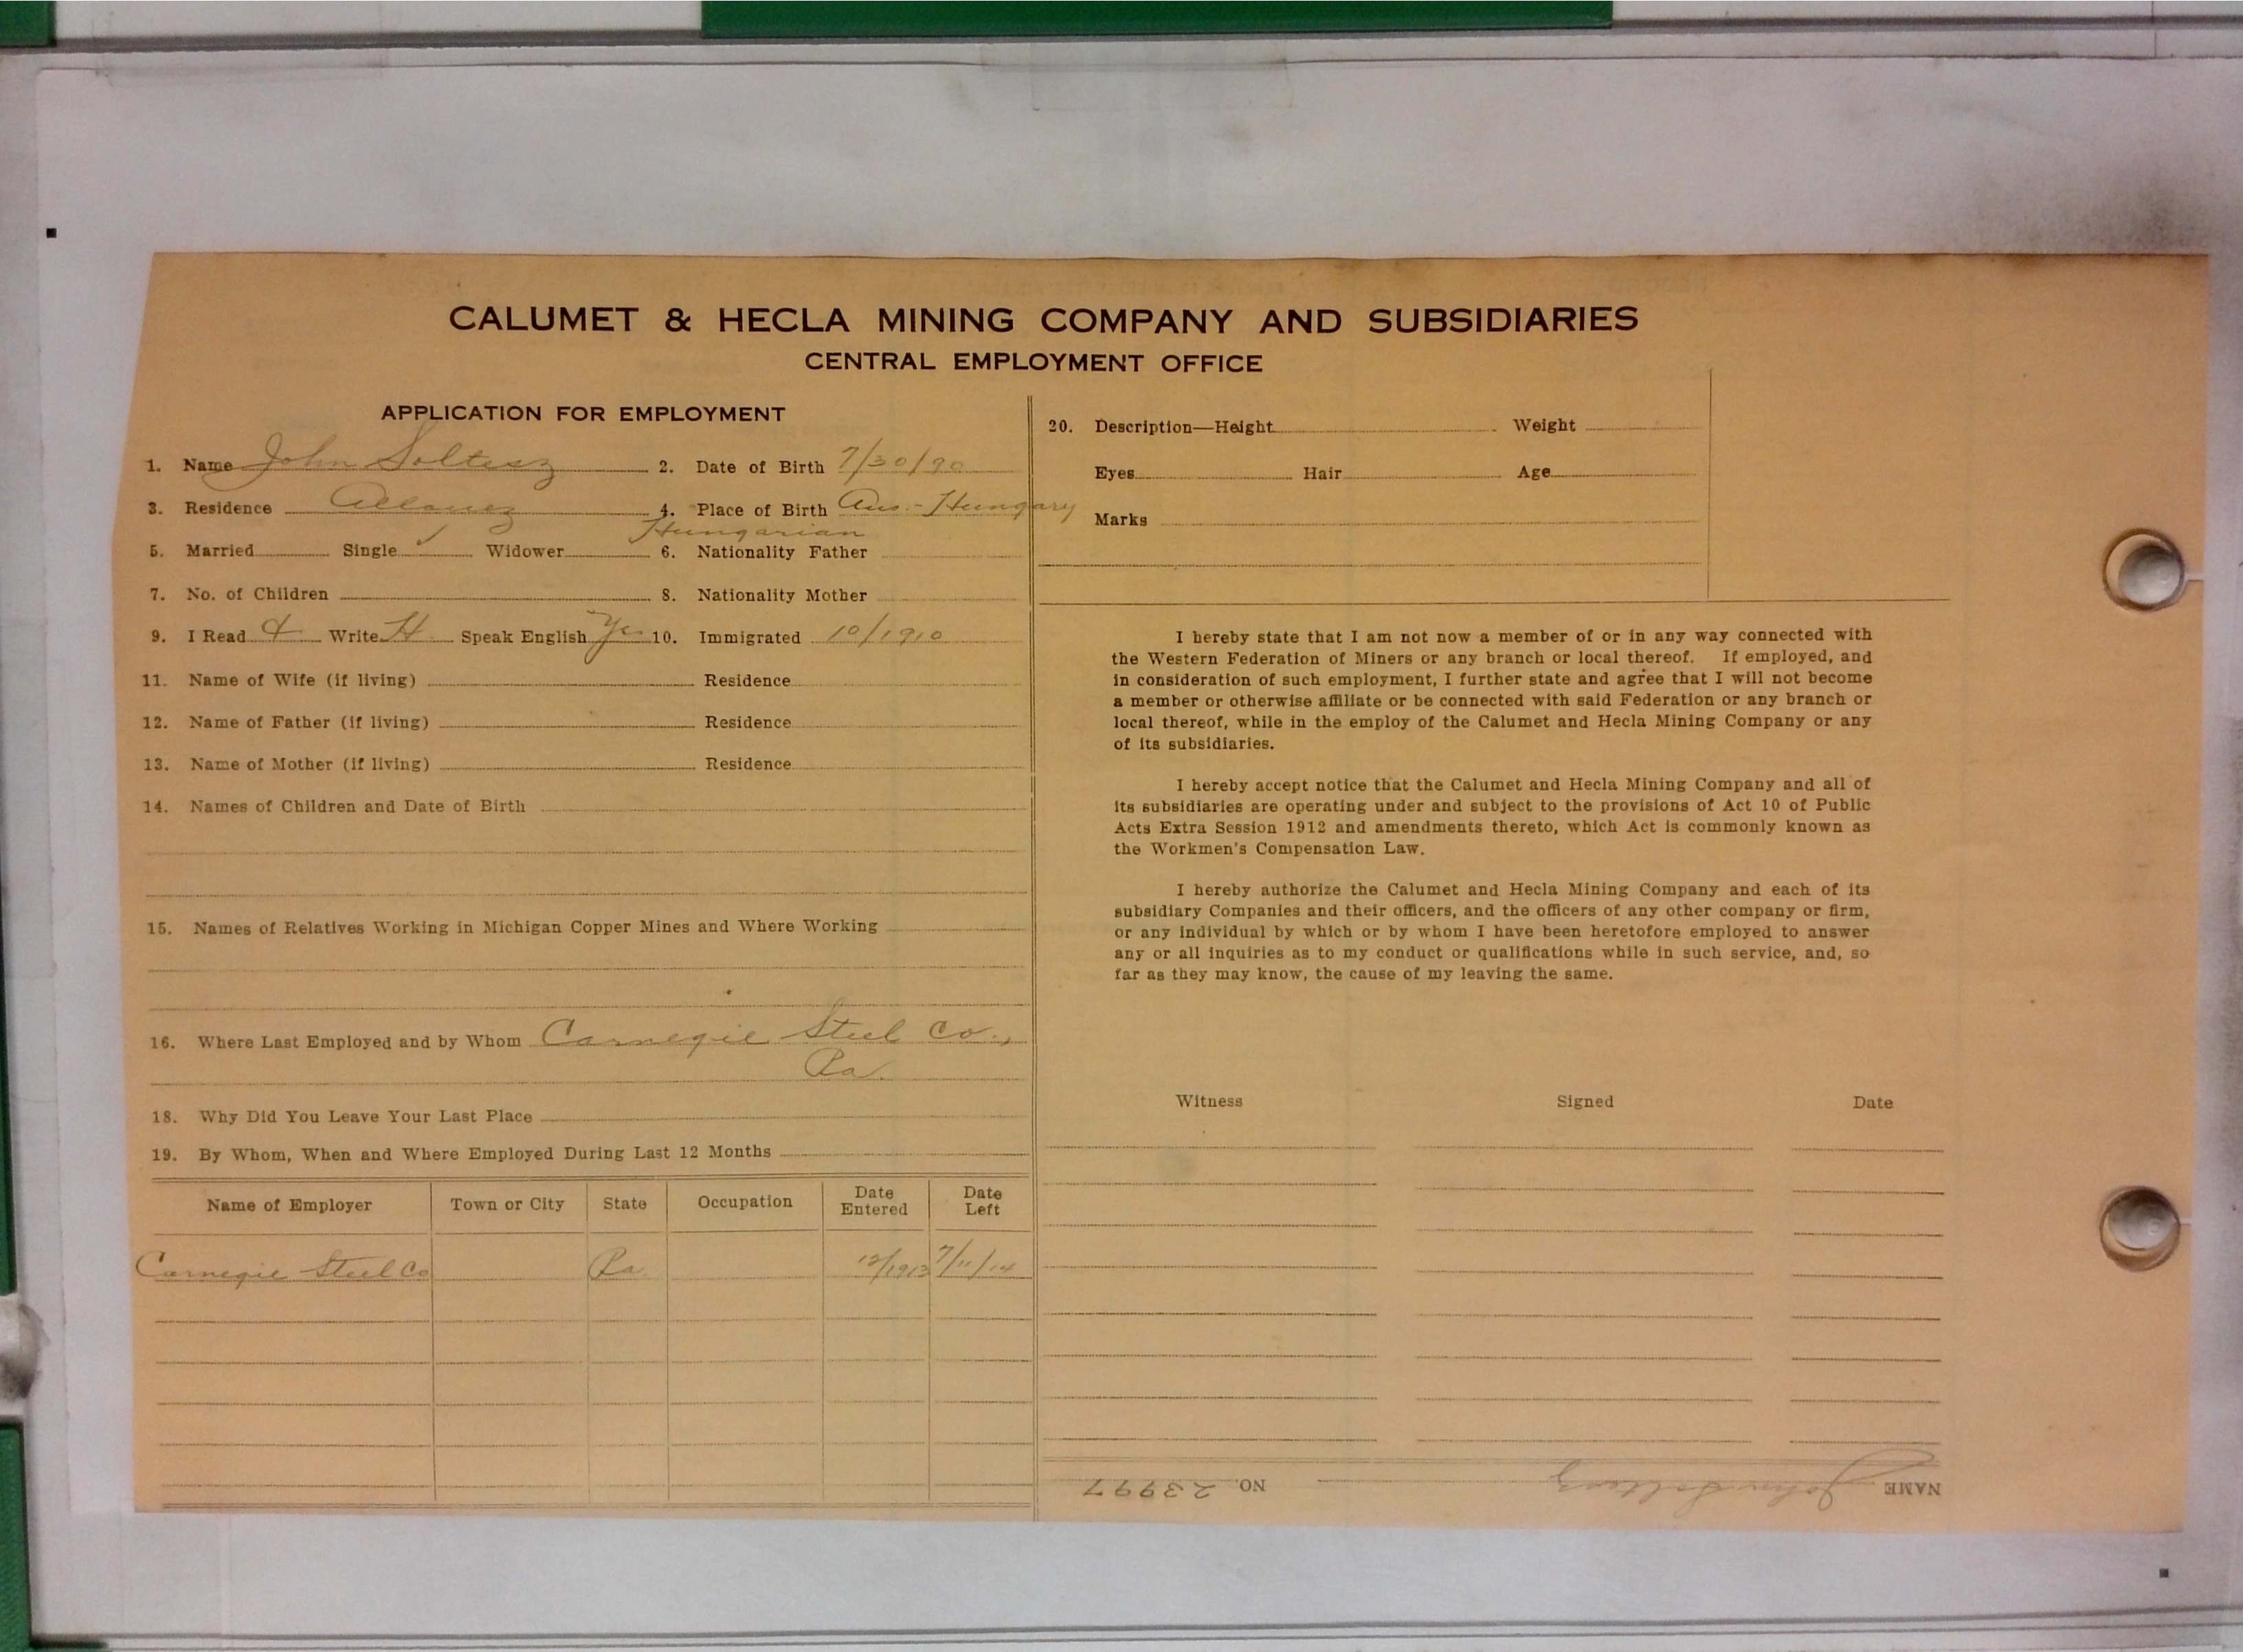 CALUMET & HECLA MINING COMPANY AND SUBSIDIARIES
CENTRAL EMPLOYMENT OFFICE
APPLICATION FOR EMPLOYMENT
1. Name John Soltesz 2. Date of Birth 7/30/90
3. Residence Allouez 4. Place of Birth Aus.-Hungary
Hungarian
5. Married Single ✓ Widower 6. Nationality Father
7. No. of Children 8. Nationality Mother
9. I Read & Write H Speak English Yes 10. Immigrated 10/1910
11. Name of Wife (if living) Residence
12. Name of Father (if living) Residence
13. Name of Mother (if living) Residence
14. Names of Children and Date of Birth
15. Names of Relatives Working in Michigan Copper Mines and Where Working
16. Where Last Employed and by Whom Carnegie Steel Co.,
Pa.
18. Why Did You Leave Your Last Place
19. By Whom, When and Where Employed During Last 12 Months
Name of Employer Town or City State Occupation Date Entered Date Left
Carnegie Steel Co Pa. 12/1913 7/11/14
20. Description—Height Weight
Eyes Hair Age
Marks
I hereby state that I am not now a member of or in any way connected with
the Western Federation of Miners or any branch or local thereof. If employed, and
in consideration of such employment, I further state and agree that I will not become
a member or otherwise affiliate or be connected with said Federation or any branch or
local thereof, while in the employ of the Calumet and Hecla Mining Company or any
of its subsidiaries.
I hereby accept notice that the Calumet and Hecla Mining Company and all of
its subsidiaries are operating under and subject to the provisions of Act 10 of Public
Acts Extra Session 1912 and amendments thereto, which Act is commonly known as
the Workmen's Compensation Law.
I hereby authorize the Calumet and Hecla Mining Company and each of its
subsidiary Companies and their officers, and the officers of any other company or firm,
or any individual by which or by whom I have been heretofore employed to answer
any or all inquiries as to my conduct or qualifications while in such service, and, so
far as they may know, the cause of my leaving the same.
Witness Signed Date
NAME John Soltesz NO. 23997